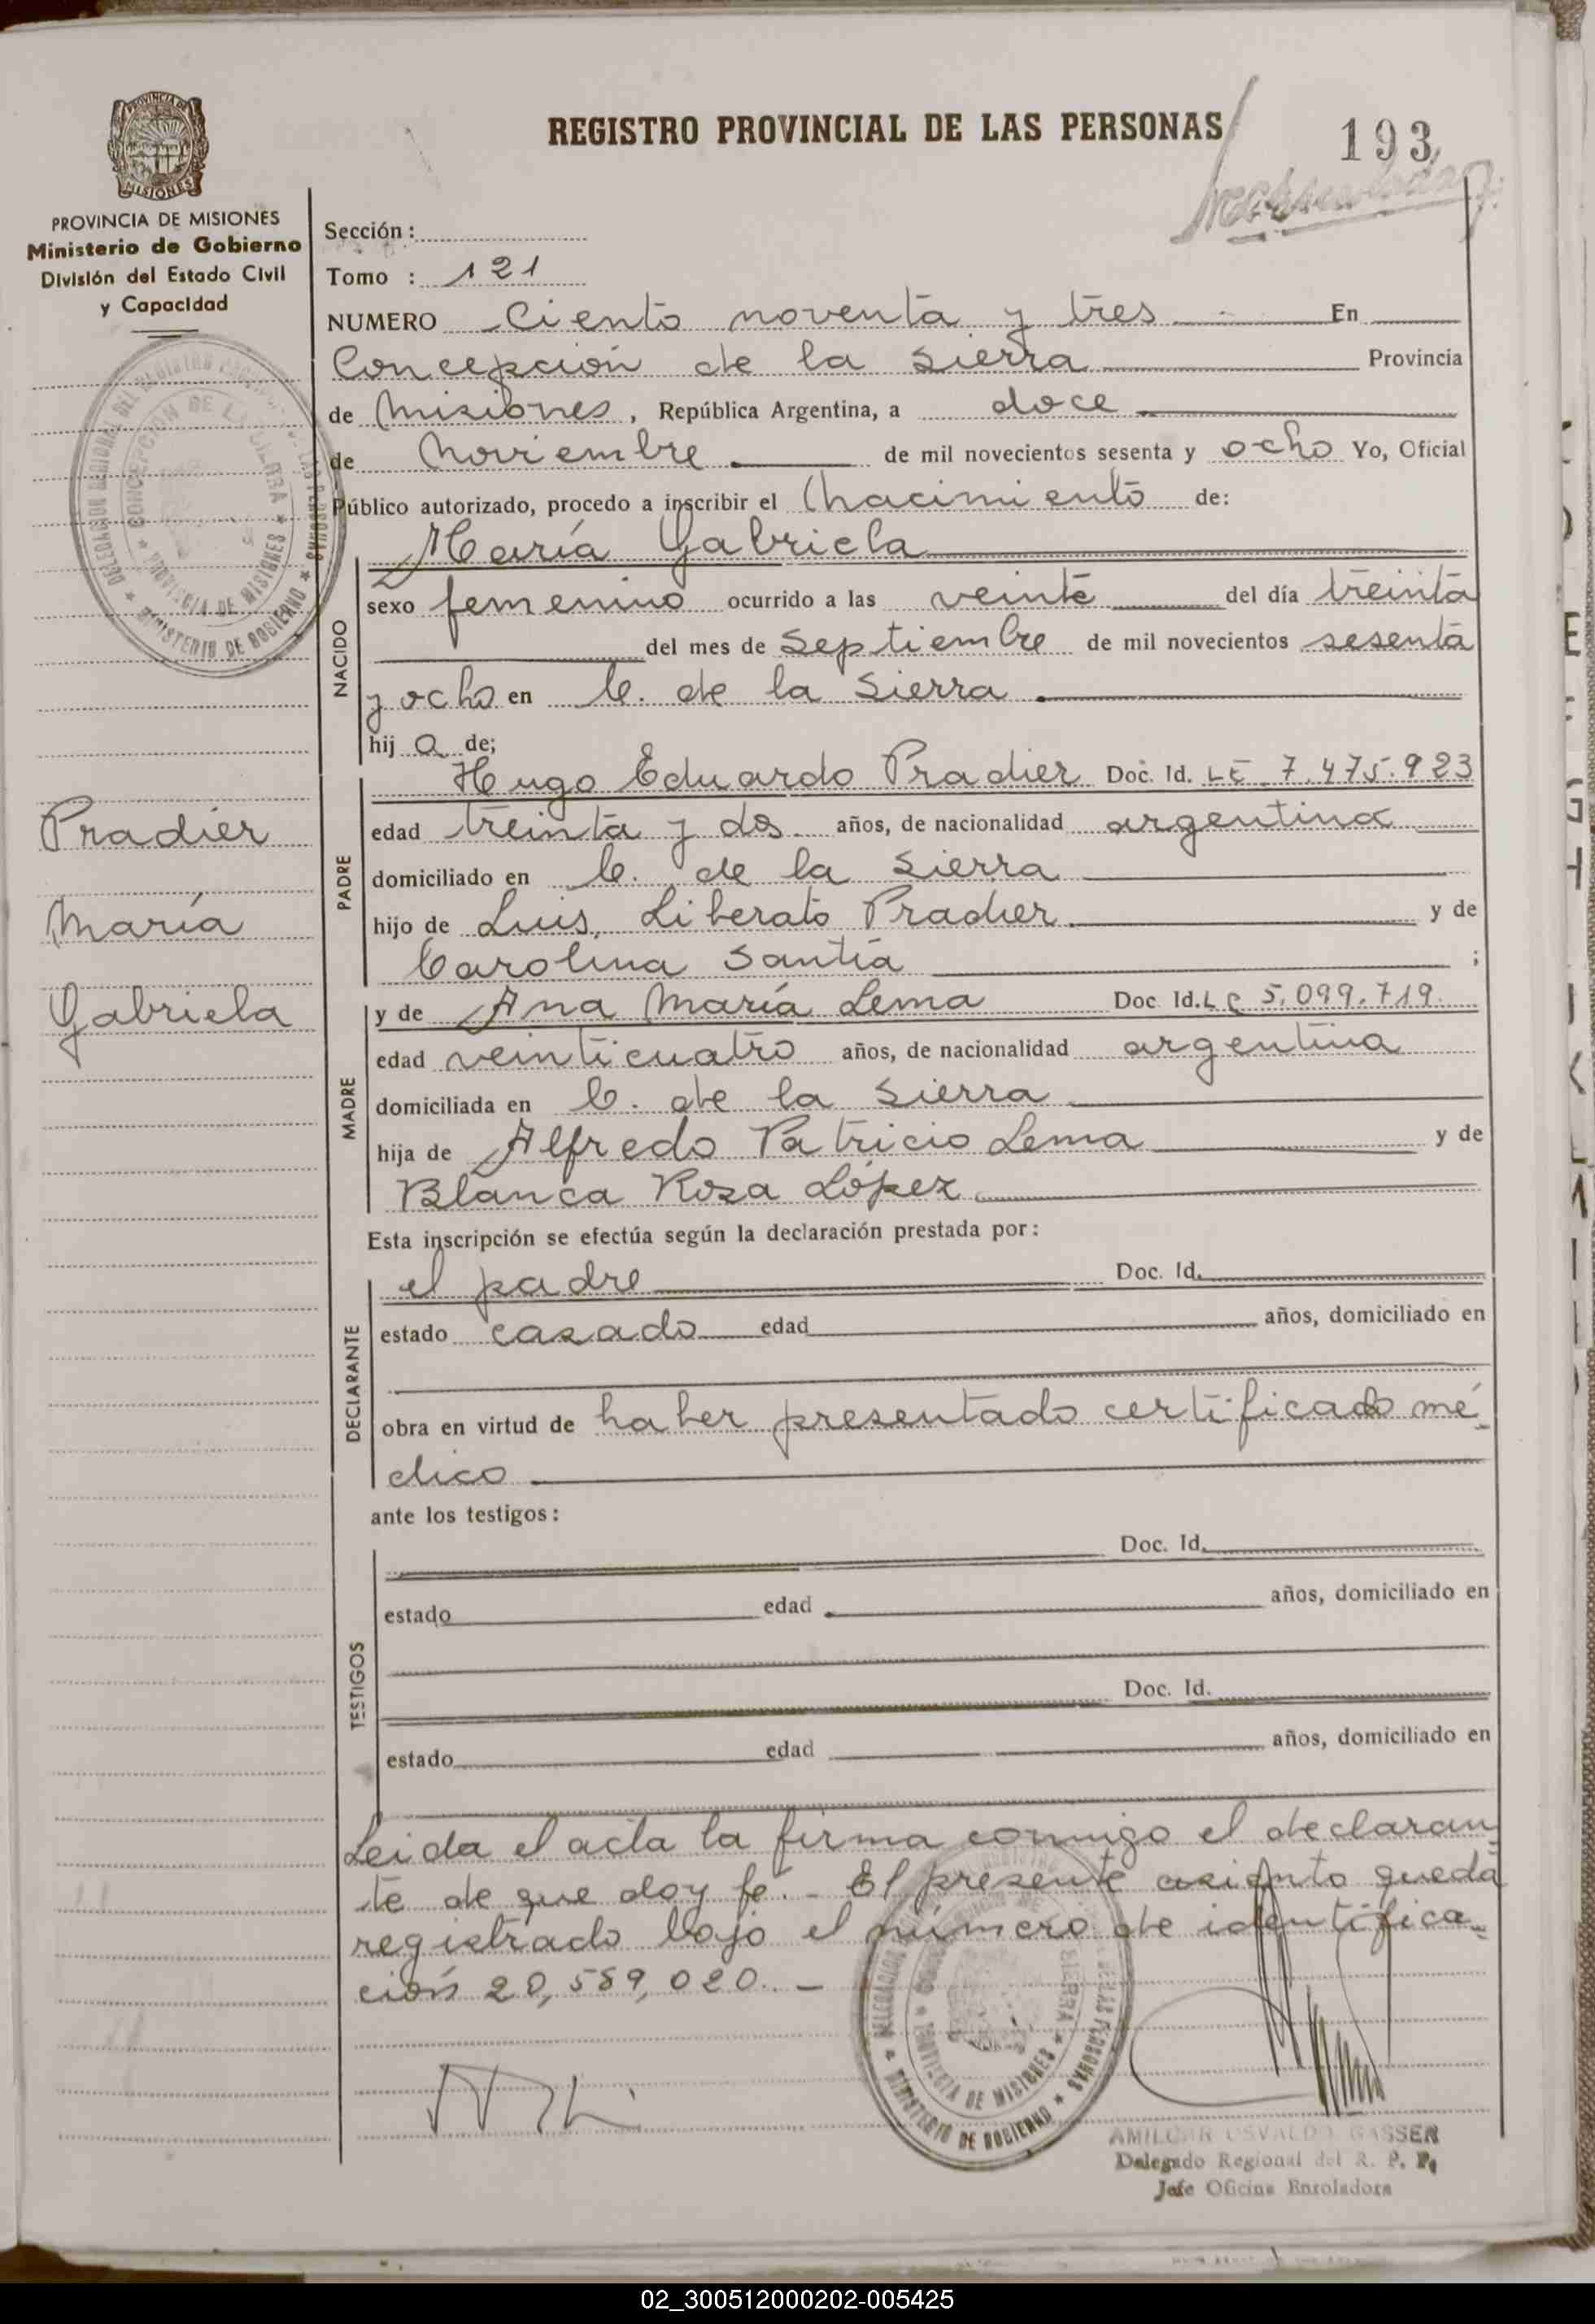 PROVINCIA DE MISIONES
MISIONES
PROVINCIA DE MISIONES
Ministerio de Gobierno
División del Estado Civil
y Capacidad
REGISTRO PROVINCIAL DE LAS PERSONAS
193
Sección :
Tomo : 121
NUMERO Ciento noventa y tres En
Concepción de la Sierra Provincia
de Misiones, República Argentina, a doce
de Noviembre de mil novecientos sesenta y ocho Yo, Oficial
Público autorizado, procedo a inscribir el Nacimiento de:
María Gabriela
NACIDO
sexo femenino ocurrido a las veinte del día treinta
del mes de Septiembre de mil novecientos sesenta
y ocho en C. de la Sierra
hij a de;
Hugo Eduardo Pradier Doc. Id. LE 7.475.923
PADRE
edad treinta y dos años, de nacionalidad argentina
domiciliado en C. de la Sierra
hijo de Luis Liberato Pradier y de
Carolina Santiá ;
Pradier
María
Gabriela
y de Ana María Lema Doc. Id. LC 5.099.719.
MADRE
edad veinticuatro años, de nacionalidad argentina
domiciliada en C. de la Sierra
hija de Alfredo Patricio Lema y de
Blanca Rosa López
Esta inscripción se efectúa según la declaración prestada por:
DECLARANTE
el padre Doc. Id.
estado casado edad años, domiciliado en
obra en virtud de haber presentado certificado mé-
dico
ante los testigos:
TESTIGOS
Doc. Id.
estado edad años, domiciliado en
Doc. Id.
estado edad años, domiciliado en
Leida el acta la firma conmigo el declaran
te de que doy fe. - El presente asiento queda
registrado bajo el número de identifica-
ción 20,589,020. -
DELEGACION REGIONAL DEL REGISTRO PROVINCIAL DE LAS PERSONAS
MINISTERIO DE GOBIERNO
CONCEPCION DE LA SIERRA
PROVINCIA DE MISIONES
AMILCAR OSVALDO GASSER
Delegado Regional del R. P. P.
Jefe Oficina Enroladora
02_300512000202-005425